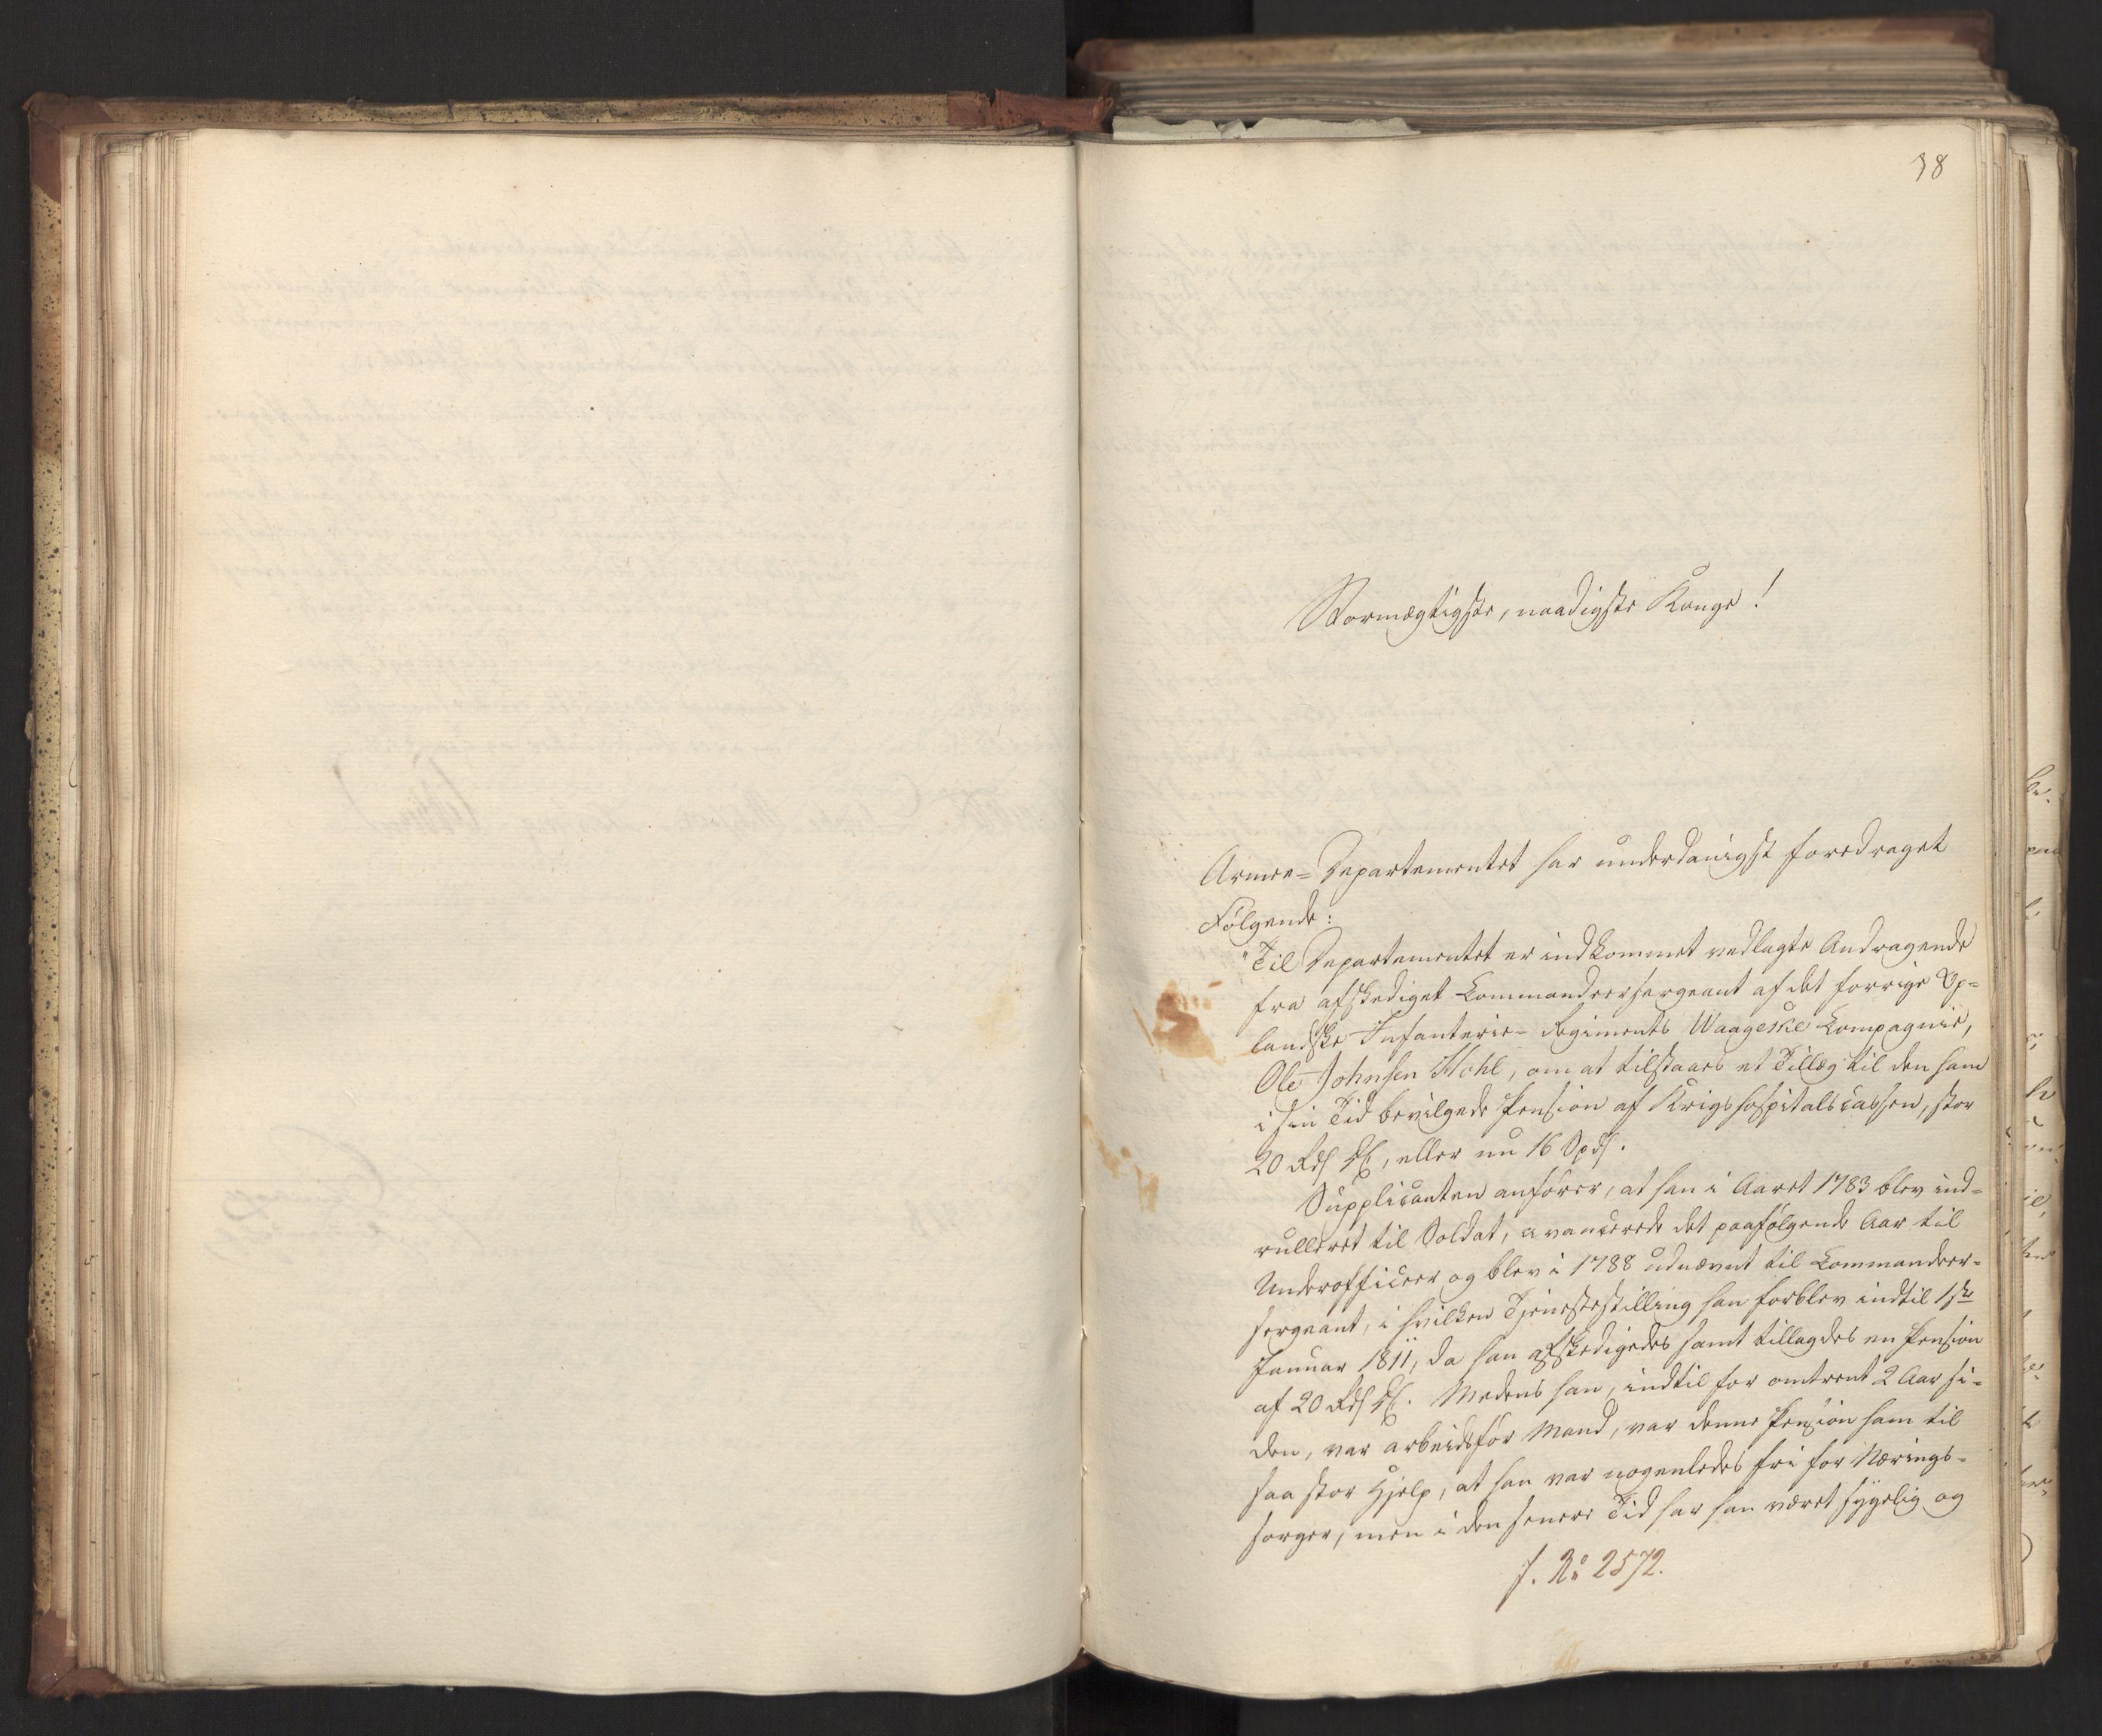 38
Stormægtigste, naadigste Konge!
Armee=Departementet har underdanigst foredraget
Følgende:
"Til Departementet er indkommet vedlagte Andragende
fra afskediget Commandeersergeant af det forrige Op=
landske Infanterie=Regiments Waageske Compagnie,
Ole Johnsen Stohl, om at tilstaaes et Tillæg til den ham
i sin Tid bevilgede Pension af Krigshospitalscassen, stor
20 Rd, eller nu 16 Spd.
Supplicanten anfører, at han i Aaret 1783 blev ind=
rulleret til Soldat, avancerede det paafølgende Aar til
Underofficeer og blev i 1788 udnævnt til Commandeer=
sergeant, i hvilken Tjenestestilling han forblev indtil 1ste
Januar 1811, da han afskedigedes samt tillagdes en Pension
af 20 Rd. Medens han, indtil for omtrent 2 Aar si=
den, var arbeidsfør Mand, var denne Pension ham til
saa stor Hjelp, at han var nogenledes fri for Nærings=
sorger, men i den senere Tid har han været sygelig og
J. No 2572.